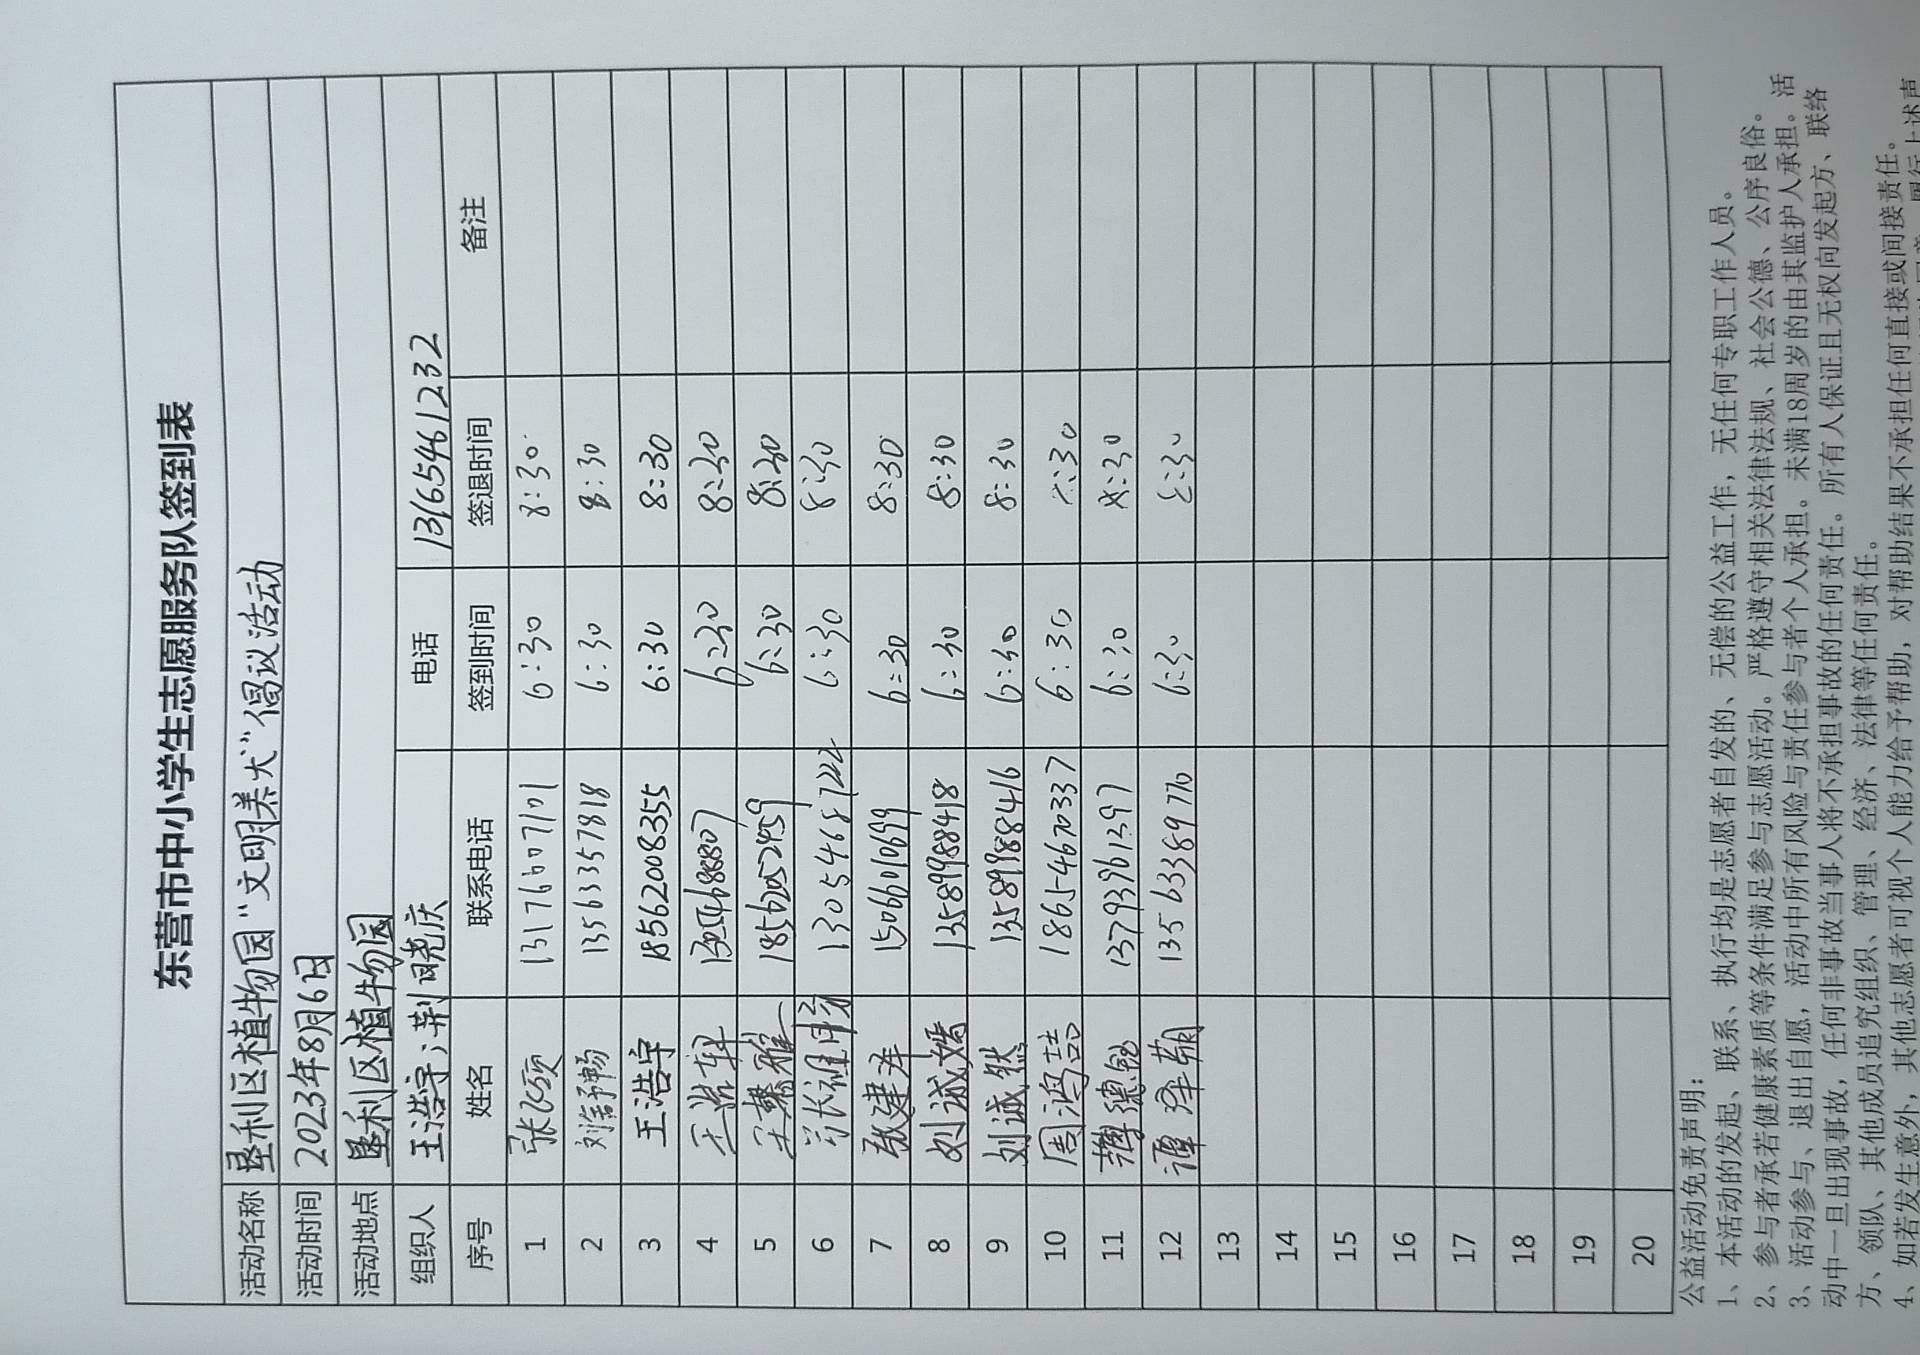 东营市中小学生志愿服务队签到表
活动名称 垦利区植物园“文明养犬”倡议活动
活动时间 2023年8月6日
活动地点 垦利区植物园
组织人 王浩宇;荆晓庆 电话 13165461232
序号 姓名 联系电话 签到时间 签退时间 备注
1 13176607101 6:30 8:30
2 刘 畅 13563357818 6:30 8:30
3 王浩宇 18562008355 6:30 8:30
4 王浩轩 6:30 8:30
5 王馨雅 18562052959 6:30 8:30
6 13054687222 6:30 8:30
7 张建泽 15066010699 6:30 8:30
8 刘诚嫣 13589988418 6:30 8:30
9 刘诚然 13589988416 6:30 8:30
10 周鸿喆 18654670337 6:30 8:30
11 德 13793961397 6:30 8:30
12 谭 13563389776 6:30 8:30
13
14
15
16
17
18
19
20
公益活动免责声明:
1、本活动的发起、联系、执行均是志愿者自发的、无偿的公益工作,无任何专职工作人员。
2、参与者承若健康素质等条件满足参与志愿活动。严格遵守相关法律法规、社会公德、公序良俗。
3、活动参与、退出自愿,活动中所有风险与责任参与者个人承担。未满18周岁的由其监护人承担。活
动中一旦出现事故,任何非事故当事人将不承担事故的任何责任。所有人保证且无权向发起方、联络
方、领队、其他成员追究组织、管理、经济、法律等任何责任。
4、如若发生意外,其他志愿者可视个人能力给予帮助,对帮助结果不承担任何直接或间接责任。